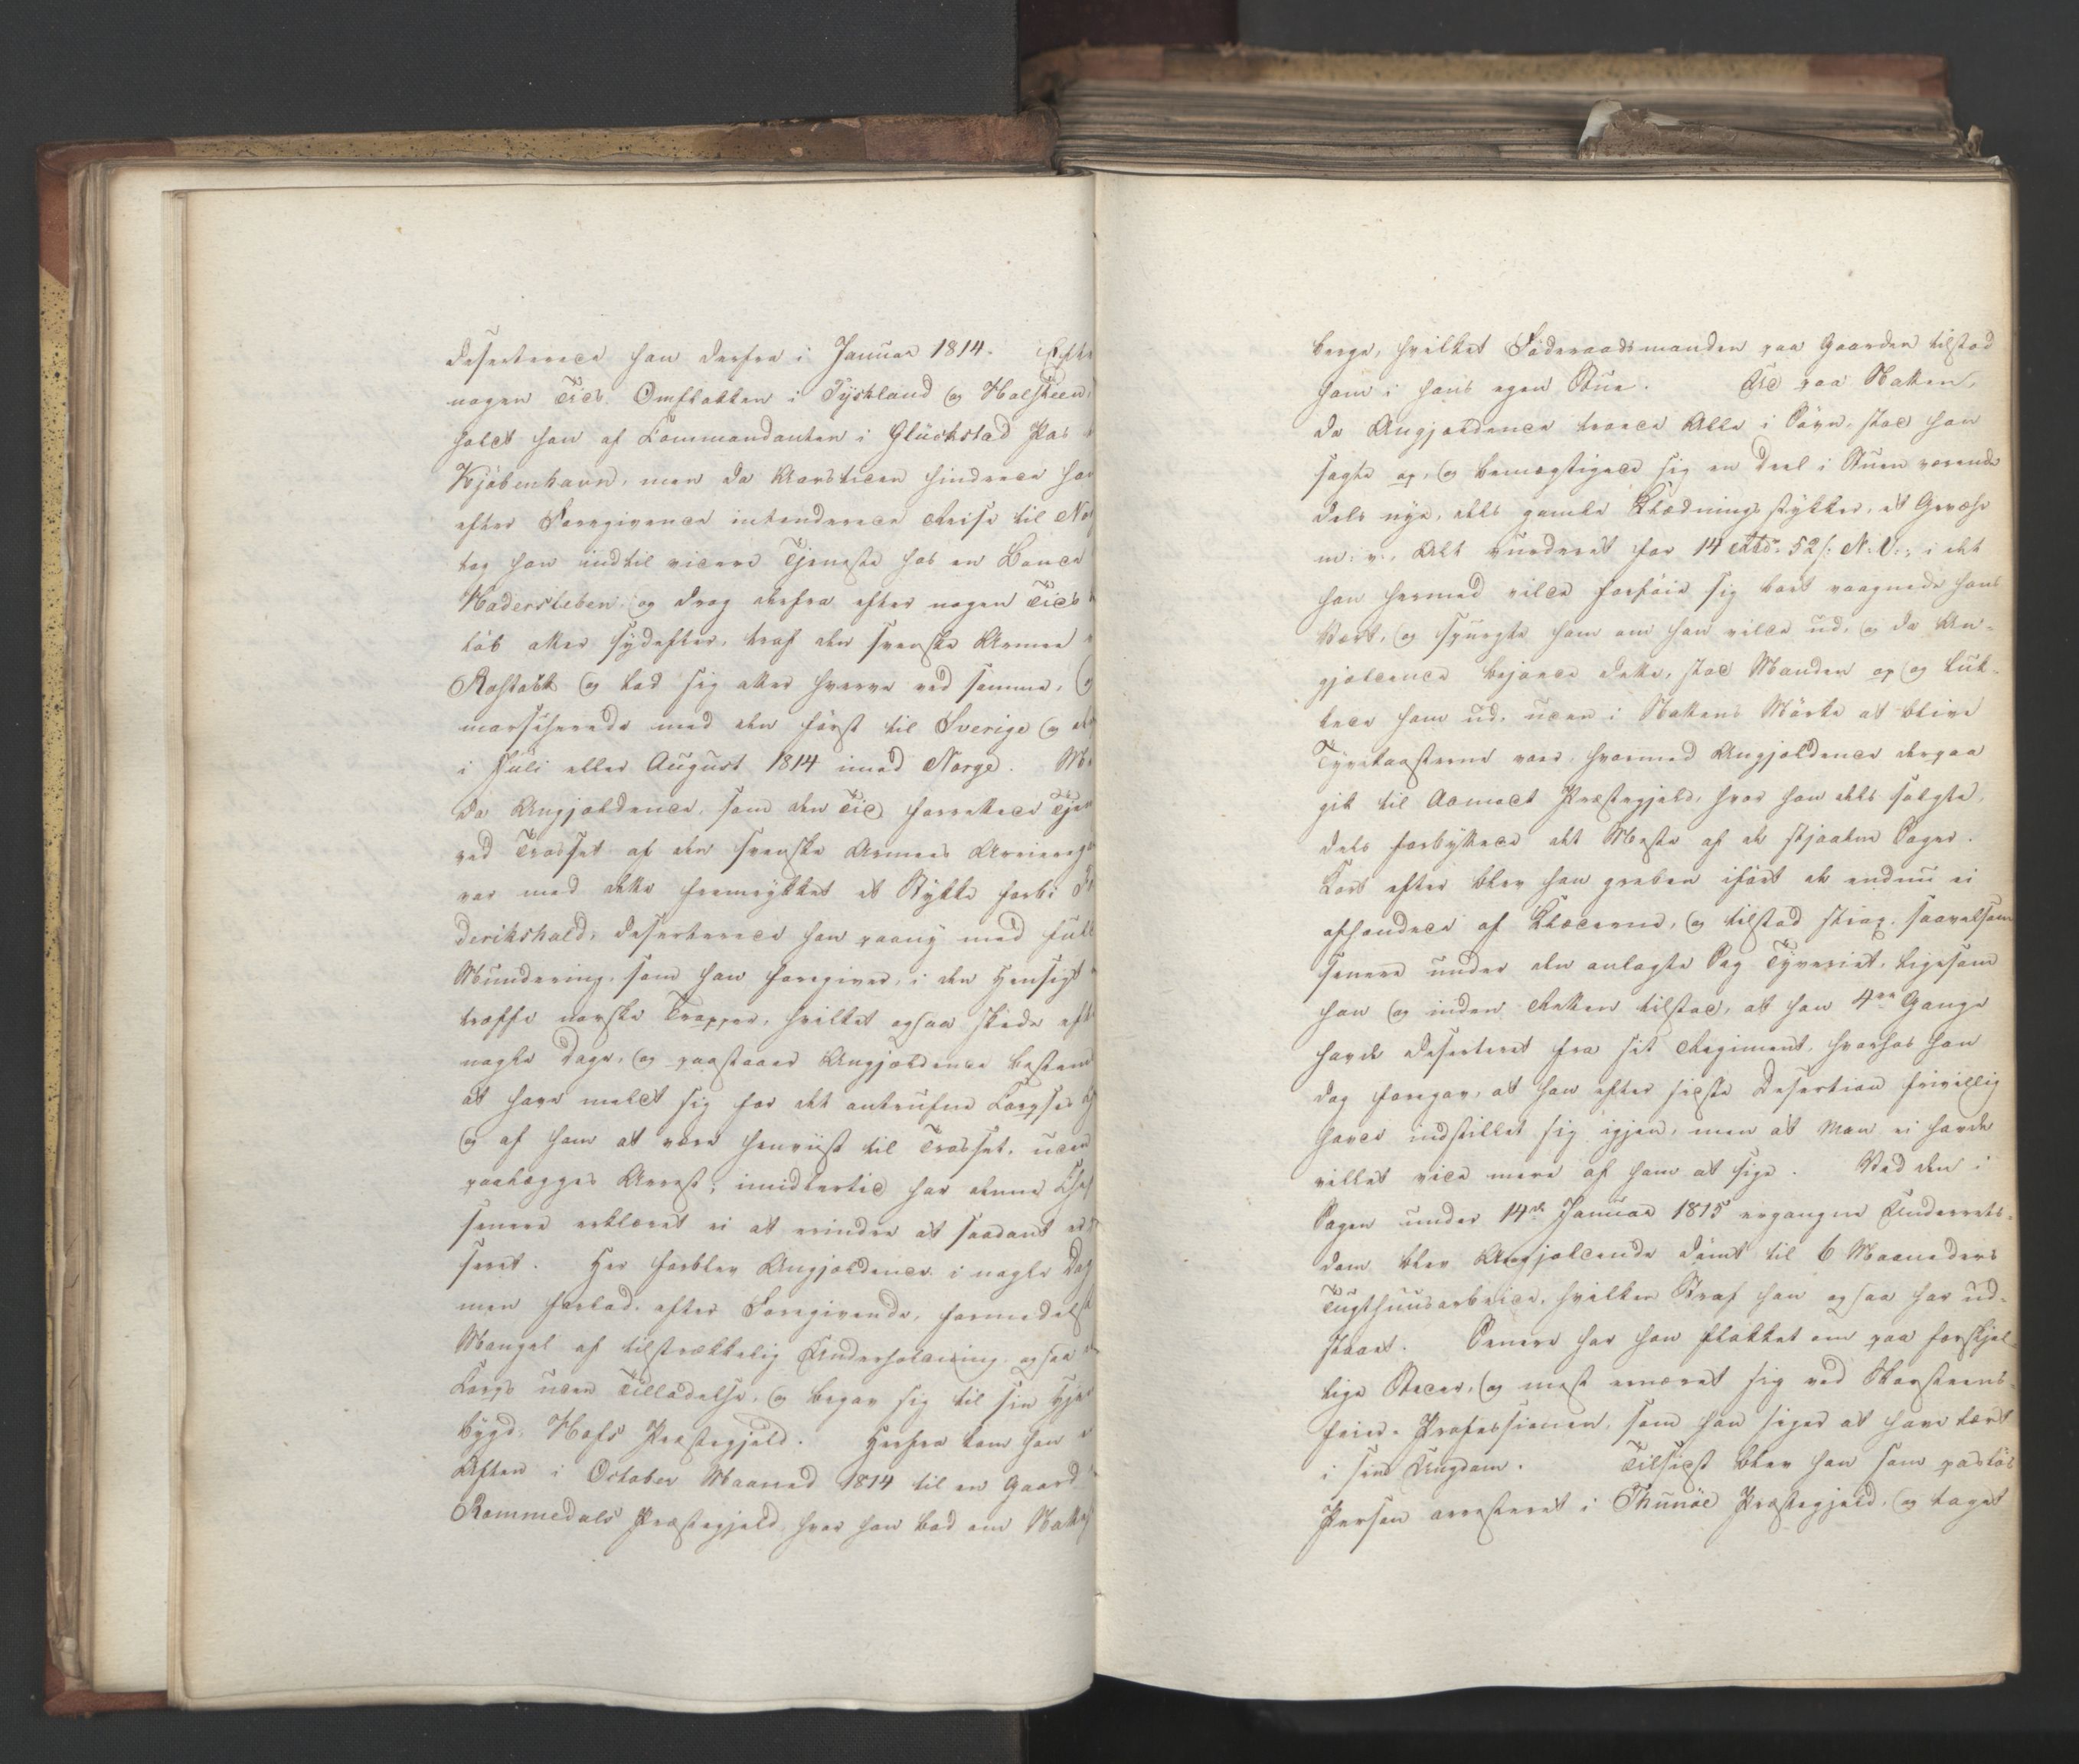 deserterede han derfra i Januar 1814. Efter
nogen Tids Omflakken i Tydskland og Holsteen,
holdt han af Commandanten i Glückstad Pas
Kjöbenhavn, men da Aarstiden hindrede ham
efter Foregivende intenderede Reise til No
tog han indtil videre Tjeneste hos en Bonde
Hadersleben, og drog derfra efter nogen Tids
löb atter sydefter, traf den svenske Armee
Rostock og lod sig atter hverve ved samme, og
marscherede med den först til Sverige og
i Juli eller August 1814 imod Norge. Me
da Angjældende, som den Tid forrettede Tjen
ved Trosset af den svenske Armees Arriereg
var med dette fremrykket et Stykke forbi Fr
derikshald, deserterede han paany med fuld
Mundering, som han foregiver, i den Hensigt
træffe norske Tropper, hvilket ogsaa skede eft
nogle Dage, og paastaaer Angjældende bestem
at have meldt sig for det antrufne Corpses
og af ham at være henviist til Trosset, uden
paalægges Arrest; imidlertid har denne Chef
senere erklæret ei at erindre at saadant er
seret. Her forblev Angjældende i nogle Dag
men forlod, efter Foregivende, formedelst
Mangel af tilstrækkelig Underholdning ogsaa
Corps uden Tilladelse, og begav sig til sin Hje
bygd, Hofs Præstegjeld. Herfra kom han
Aften i October Maaned 1814 til en Gaard
Rommedals Præstegjeld, hvor han bad om Natte
berge, hvilket Föderaadsmanden paa Gaarden tilstod
ham i hans egen Stue. Ud paa Natten,
da Angjældende troede Alle i Sövn, stod han
sagte op, og bemægtigede sig en Deel i Stuen værende
dels nye, dels gamle Klædningsstykker, et Gevæhr
m: v:, Alt vurderet for 14 Rbd. 52 s: N: V:; i det
han hermed vilde forföie sig bort vaagnede hans
Vært, og spurgte ham om han vilde ud, og da An-
gjældende bejaede dette, stod Manden op og luk-
kede ham ud, uden i Nattens Mörke at blive
Tyvekosterne vaer, hvormed Angjældende derpaa
gik til Aamodt Præstegjeld, hvor han dels solgte,
dels forbyttede det Meste af de stjaalne Sager.
Kort efter blev han greben iført de endnu ei
afhændede af Klæderne, og tilstod strax, saavelsom
senere under den anlagte Sag Tyveriet, ligesom
han og inden Retten tilstod, at han 4re Gange
havde deserteret fra sit Regiment, hvorhos han
dog foregav, at han efter sidste Desertion frivillig
havde indstillet sig igjen, men at man ei havde
villet vide mere af ham at sige. Ved den i
Sagen under 14de Januar 1815 ergangne Underrets-
dom blev Angjældende dömt til 6 Maaneders
Tugthuusarbeide, hvilken Straf han ogsaa har ud-
staaet. Senere har han flakket om paa forskjel-
lige Steder, og mest ernæret sig ved Skorsteens-
feier-Professionen, som han siger at have lært
i sin Ungdom. Tilsidst blev han som pasløs
Person arresteret i Thunöe Præstegjeld, og taget